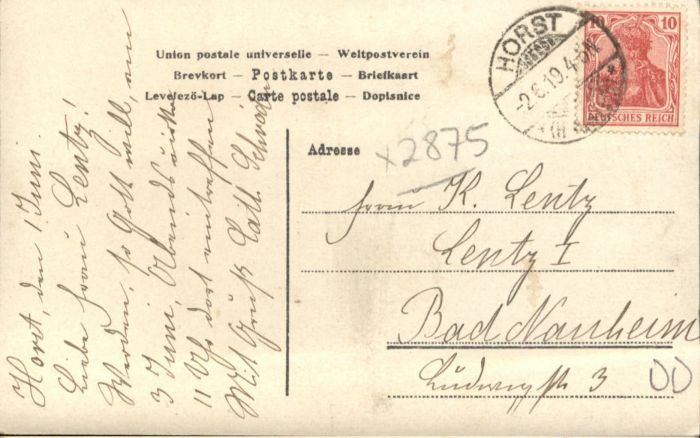 Union postale universelle – Weltpostverein
Brevkort – Postkarte – Briefkaart
Levelező-Lap – Carte postale – Dopisnice
HORST
-2.6.10.4-5N.
10 10
DEUTSCHES REICH
Adresse
x2875
Frau K. Lentz
Lentz I
Bad Nauheim
Ludwigstr 3
Horst, den 1 Juni.
Liebe Frau Lentz!
Werden, so Gott will, am
3 Juni, Abends
11 Uhr dort eintreffen
Mit Gruß Cath. Schröder